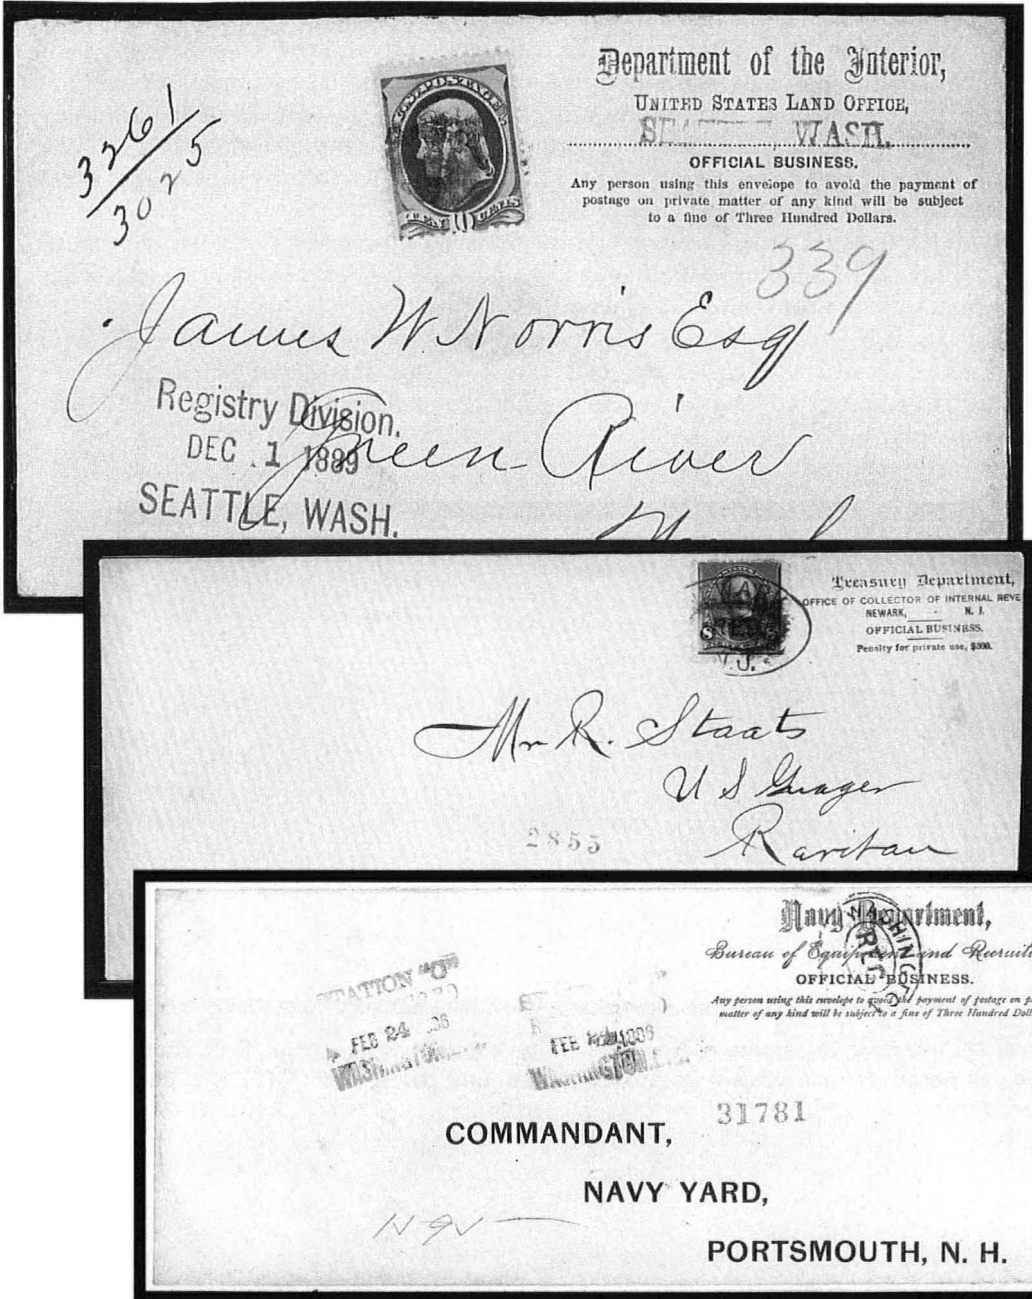 Department of the Interior,
UNITED STATES LAND OFFICE,
SEATTLE, WASH.
OFFICIAL BUSINESS.
Any person using this envelope to avoid the payment of
postage on private matter of any kind will be subject
to a fine of Three Hundred Dollars.
3261
3025
U.S. POSTAGE
TEN 10 CENTS
339
James W Norris Esq
Registry Division.
Green River
DEC 1 1889
SEATTLE, WASH.
Treasury Department,
OFFICE OF COLLECTOR OF INTERNAL REVE
NEWARK, N. J.
OFFICIAL BUSINESS.
Penalty for private use, $300.
N.J.
Mr R. Staats
U S Guager
2855
Raritan
Navy Department,
Bureau of Equipment and Recruiti
OFFICIAL BUSINESS.
Any person using this envelope to avoid the payment of postage on p
matter of any kind will be subject to a fine of Three Hundred Doll
WASHINGTON
REC'D
STATION "C"
FEB 24
WASHINGTON
FEB 1886
WASHINGTON
31781
COMMANDANT,
NAVY YARD,
PORTSMOUTH, N. H.